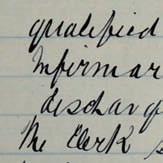 qualified
Infirmar
discharg
The Clerk